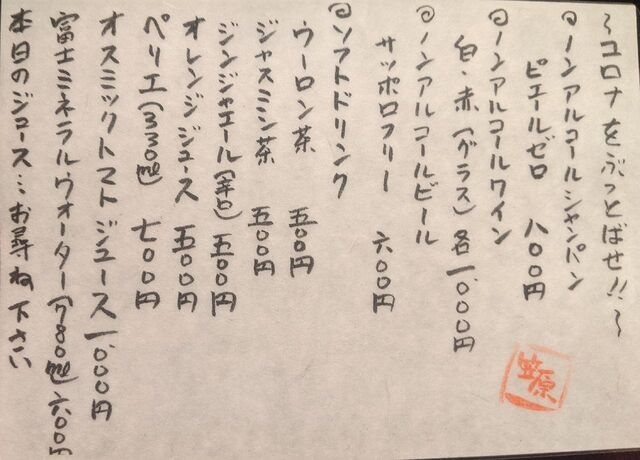 ～コロナをぶっとばせ!!～
◎ノンアルコールシャンパン
ピエールゼロ 八〇〇円
◎ノンアルコールワイン
白・赤(グラス)各一、〇〇〇円
◎ノンアルコールビール
サッポロフリー 六〇〇円
◎ソフトドリンク
ウーロン茶 五〇〇円
ジャスミン茶 五〇〇円
ジンジャエール(辛口)五〇〇円
オレンジジュース 五〇〇円
ペリエ(330㎖) 七〇〇円
オスミックトマトジュース 一、〇〇〇円
富士ミネラルウォーター(780㎖)六〇〇円
本日のジュース…お尋ね下さい
笠原